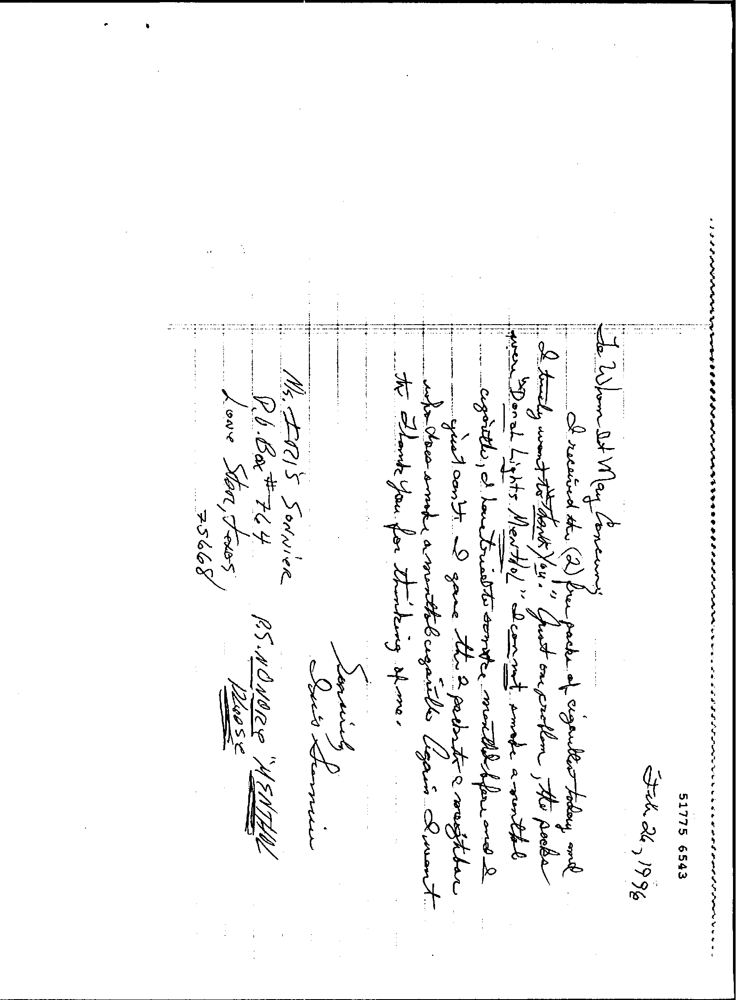 51775 6543
Feb 26, 1996
To Whom It May Concern;
I received the (2) free packs of cigarettes today and
I truly want to "thank you." Just one problem, the packs
were "Doral Lights Menthol" I can not smoke a menthol
cigarette, I have tried to smoke menthol before and I
just can't. I gave the 2 packs to a neighbor
who does smoke a menthol cigarette. Again I want
to thank you for thinking of me.
Sincerely
Iris Sonnier
Ms. IRIS SONNIER
P.O. Box #764
Lone Star, Texas
75668
P.S. NO MORE "MENTHOL"
Please